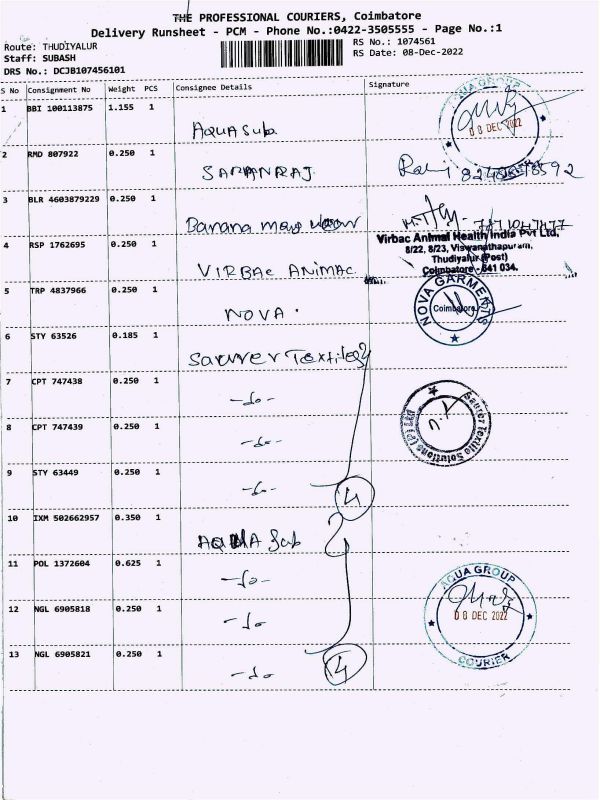 THE PROFESSIONAL COURIERS, Coimbatore
Delivery Runsheet - PCM - Phone No.:0422-3505555 - Page No.:1
Route: THUDIYALUR
Staff: SUBASH
DRS No.: DCJB107456101
RS No.: 1074561
RS Date: 08-Dec-2022
S No Consignment No Weight PCS Consignee Details Signature
1 BBI 100113875 1.155 1
AQUA Sub
AQUA GROUP
08 DEC 2022
COURIER
2 RMD 807922 0.250 1
SARANRAJ
3 BLR 4603879229 0.250 1
4 RSP 1762695 0.250 1
VIRBAC ANIMAC
Virbac Animal Health India Pvt Ltd,
8/22, 8/23, Viswanathapuram,
Thudiyalur (Post)
Coimbatore - 641 034.
5 TRP 4837966 0.250 1
NOVA.
NOVA GARMENTS
Coimbatore
6 STY 63526 0.185 1
Saurer Textiles
7 CPT 747438 0.250 1
-do-
8 CPT 747439 0.250 1
-do-
Saurer Textile Solutions (P) Ltd
9 STY 63449 0.250 1
-do-
4
10 IXM 502662957 0.350 1
AQUA Sub
11 POL 1372604 0.625 1
-do-
12 NGL 6905818 0.250 1
-do-
AQUA GROUP
08 DEC 2022
COURIER
13 NGL 6905821 0.250 1
-do-
4